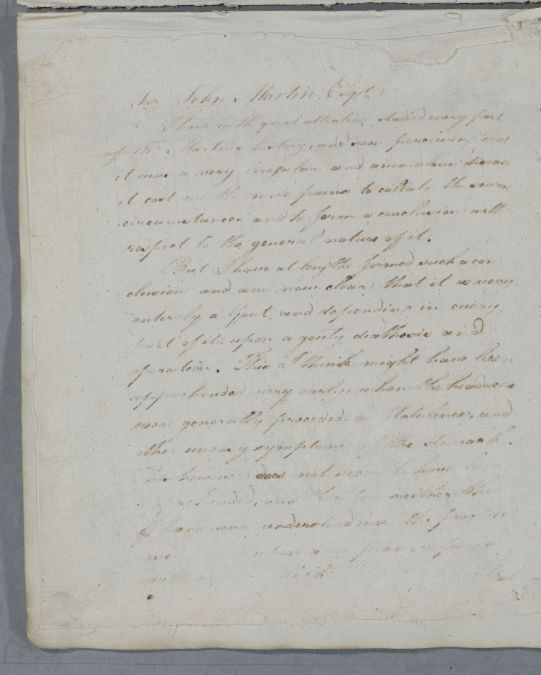 For John Martin Esqr.
I have with great attention studied every part
of Mr. Martin's history, and was perceiving that
it was a very irregular and anomalous disease
it cost me the more pains to collate the
circumstances and to form a conclusion with
respect to the general nature of it.
But I have at length formed such a con
clusion and am now clear that it is very
entirely a Gout and depending in every
part of it upon a gouty diathesis and
operation. This I think might have been
apprehended very early when the headach
was generally preceded flatulence, and
other uneasy symptoms of the stomach.
This however does not seem to have been
apprehended, and neither the
understood nor the practice
upon any
with
But